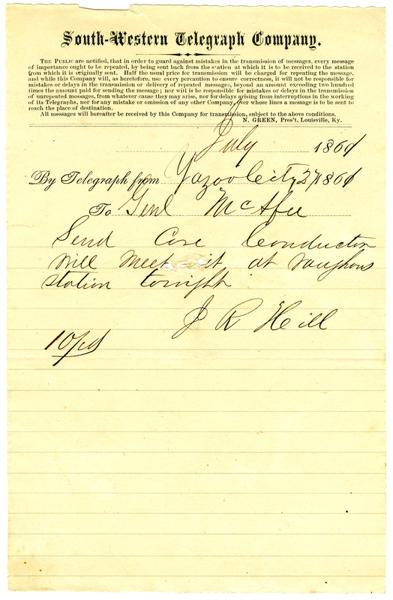 South-Western Telegraph Company.
THE PUBLIC are notified, that in order to guard against mistakes in the transmission of messages, every message
of importance ought to be repeated, by being sent back from the station at which it is to be received to the station
from which it is originally sent. Half the usual price for transmission will be charged for repeating the message,
and while this Company will, as heretofore, use every percantion to ensure correctness, it will not be responsible for
mistakes or delays in the transmission or delivery of repeated messages, beyond an amount exceeding two hundred
times the amount paid for sending the message; nor will it be responsible for mistakes or delays in the transmission
of unrepeated messages, from whatever cause they may arise, nor for delays arising from interruptions in the working
of its Telegraphs, nor for any mistake or omission of any other Company, over whose lines a message is to be sent to
reach the place of destination.
All messages will hereafter be received by this Company for transmission, subject to the above conditions.
N. GREEN, Pres't, Louisville, Ky.
July 1864
By Telegraph from Yazoo City 27 1864
To Genl McAfee
Send Care Conductor
will meet it at Vaughons
station tonight
J R Hill
10 pd